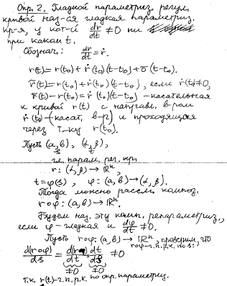 Опр. 2. Гладкой параметриз. регул.
кривой наз-ся гладкая параметриз.
кр-я, у кот-й dr/dt ≠ 0 ни
при каком t.
Обознач: dr/dt = ṙ.
r(t) = r(t₀) + ṙ(t₀)(t-t₀) + ō(t-t₀).
r̃(t) = r(t₀) + ṙ(t₀)(t-t₀), если ṙ(t₀) ≠ 0,
r̃(t) - r(t₀) = ṙ(t₀)(t-t₀) - касательная
к кривой r(t) с направл. в-ром
ṙ(t₀) - (касат. в-р) и проходящая
через т-ку r(t₀).
Пусть (a, b), (α, β),
гл. парам. рег. кр.
r: (α, β) → ℝⁿ,
t = φ(s), φ: (a, b) → (α, β).
Тогда можно рассм. композ.
r∘φ: (a, b) → ℝⁿ.
Будем наз. эту комп. репараметриз.,
если φ - гладкая и dφ/ds ≠ 0.
Пусть r∘φ: (a, b) → ℝⁿ, проверим, что
d(r∘φ)/ds = dr/dt dt/ds ≠ 0
≠0 ≠0
т.к. r(t) - г. п. р. к. по опр. параметриз.